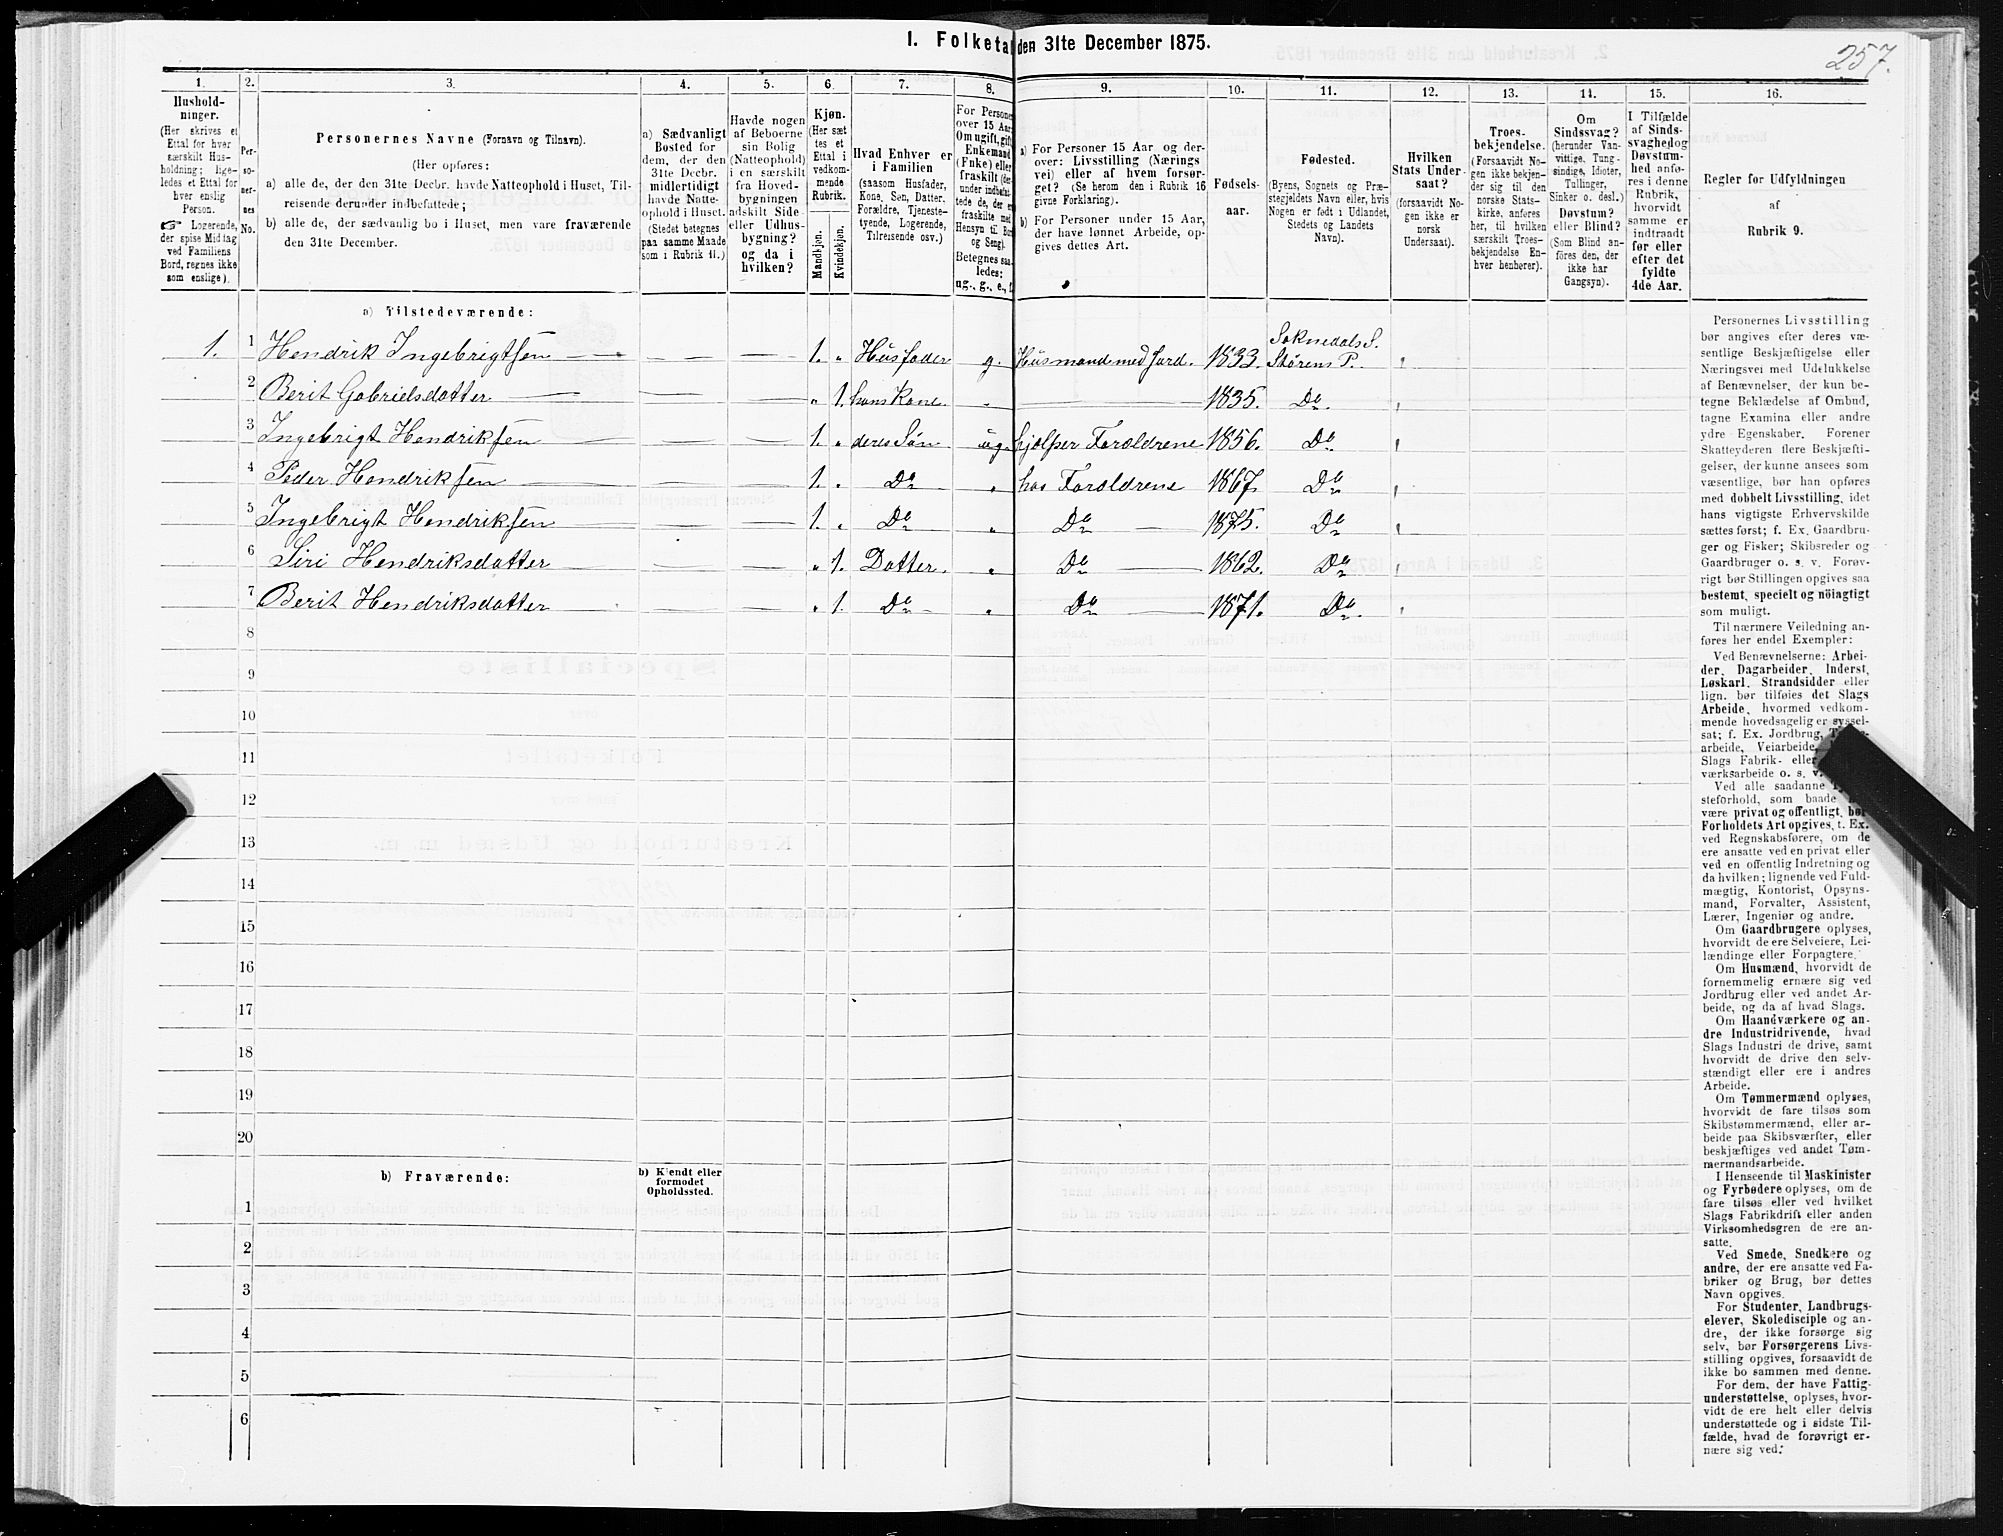 I. Folketa den 31te December 1875.
257.
1.
2.
3.
4.
5.
6.
7.
8.
9.
10.
11.
12.
13.
14.
15.
16.
Hushold-
ninger.
(Her skrives et
Ettal for hver
særskilt Hus-
holdning; lige-
ledes et Ettal for
hver enslig
Person.
☞ Logerende,
der spise Middag
ved Familiens
Bord, regnes ikke
som enslige).
Per-
so-
ner-
nes
No.
Personernes Navne (Fornavn og Tilnavn).
(Her opføres:
a) alle de, der den 31te Decbr. havde Natteophold i Huset, Til-
reisende derunder indbefattede;
b) alle de, der sædvanlig bo i Huset, men vare fraværende
den 31te December.
a) Sædvanligt
Bosted for
dem, der den
31te Decbr.
midlertidigt
havde Natte-
ophold i Huset.
(Stedet betegnes
paa samme Maade
som i Rubrik 11.)
Havde nogen
af Beboerne
sin Bolig
(Natteophold)
i en særskilt
fra Hoved-
bygningen
adskilt Side-
eller Udhus-
bygning?
og da i
hvilken?
Kjøn.
(Her sæt
tes et
Ettal i
vedkom-
mende
Rubrik.
Mandkjøn.
Kvindekjøn.
Hvad Enhver er
i Familien
(saasom Husfader,
Kone, Søn, Datter,
Forældre, Tjeneste-
tyende, Logerende,
Tilreisende osv.)
For Persone
over 15 Aar
Om ugift, gift
Enkemand
(Enke) eller
fraskilt (der-
under indbefat-
tede de, der er
fraskilte med
Hensyn til Bor
og Seng).
Betegnes saa-
ledes:
ug., g., e., f.
a) For Personer 15 Aar og der-
over: Livsstilling (Nærings
vei) eller af hvem forsør-
get? (Se herom den i Rubrik 16
givne Forklaring).
b) For Personer under 15 Aar,
der have lønnet Arbeide, op-
gives dettes Art.
Fødsels-
aar.
Fødested.
(Byens, Sognets og Præ-
stegjeldets Navn eller, hvis
Nogen er født i Udlandet,
Stedets og Landets
Navn).
Hvilken
Stats Under-
saat?
(forsaavidt No-
gen ikke er
norsk
Undersaat).
Troes-
bekjendelse.
(Forsaavidt No-
gen ikke bekjen-
der sig til den
norske Stats-
kirke, anføres
her, til hvilken
særskilt Troes-
bekjendelse En-
hver henhører).
Om
Sindssvag?
(herunder Van-
vittige, Tung-
sindige, Idioter,
Tullinger,
Sinker o. desl.)
Døvstum?
eller Blind?
(Som Blind an-
føres den, der
ikke har
Gangsyn).
I Tilfælde
af Sinds-
svaghed og
Døvstum-
hed anfø-
res i denne
Rubrik,
hvorvidt
samme er
indtraadt
før eller
efter det
fyldte
4de Aar.
Regler for Udfyldningen
af
Rubrik 9.
a) Tilstedeværende:
1. 1 Hendrik Ingebrigtsen — — — 1. „ Husfader g. Husmand med Jord. 1833. Soknedals S. Størens P. „
2 Berit Gabrielsdatter — — — „ 1. hans Kone. „ — 1835. Do. „
3 Ingebrigt Hendriksen — — — 1. „ deres Søn ug. hjelper Forældrene 1856. Do. „
4 Peder Hendriksen — — — 1. „ Do „ hos Forældrene 1867. Do „
5 Ingebrigt Hendriksen — — — 1. „ Do „ Do — 1875. Do „
6 Siri Hendriksdatter — — — „ 1. Datter. „ Do — 1862. Do „
7 Berit Hendriksdatter — — — „ 1. Do „ Do — 1871. Do. „
8
9
10
11
12
13
14
15
16
17
18
19
20
b) Fraværende:
b) Kjendt eller
formodet
Opholdssted.
1
2
3
4
5
6
Personernes Livsstilling
bør angives efter deres væ-
sentlige Beskjæftigelse eller
Næringsvei med Udelukkelse
af Benævnelser, der kun be-
tegne Beklædelse af Ombud,
tagne Examina eller andre
ydre Egenskaber. Forener
Skatteyderen flere Beskjæfti-
gelser, der kunne ansees som
væsentlige, bør han opføres
med dobbelt Livsstilling, idet
hans vigtigste Erhvervskilde
sættes først; f. Ex. Gaardbru-
ger og Fisker; Skibsreder og
Gaardbruger o. s. v. Forøv-
rigt bør Stillingen opgives saa
bestemt, specielt og nöiagtigt
som muligt.
Til nærmere Veiledning an-
føres her endel Exempler:
Ved Benævnelserne: Arbei-
der, Dagarbeider, Inderst,
Løskarl, Strandsidder eller
lign. bør tilføies det Slags
Arbeide, hvormed vedkom-
mende hovedsagelig er syssel-
sat; f. Ex. Jordbrug,
arbeide, Veiarbeide,
Slags Fabrik- eller
værksarbeide o. s. v.
Ved alle saadanne
steforhold, som baade
være privat og offentligt, bør
Forholdets Art opgives, t. Ex.
ved Regnskabsførere, om de
ere ansatte ved en privat eller
ved en offentlig Indretning og
da hvilken; lignende ved Fuld-
mægtig, Kontorist, Opsyns-
mand, Forvalter, Assistent,
Lærer, Ingeniør og andre.
Om Gaardbrugere oplyses,
hvorvidt de ere Selveiere, Lei-
lændinge eller Forpagtere.
Om Husmænd, hvorvidt de
fornemmelig ernære sig ved
Jordbrug eller ved andet Ar-
beide, og da af hvad Slags.
Om Haandværkere og an-
dre Industridrivende, hvad
Slags Industri de drive, samt
hvorvidt de drive den selv-
stændigt eller ere i andres
Arbeide.
Om Tømmermænd oplyses,
hvorvidt de fare tilsøs som
Skibstømmermænd, eller ar-
beide paa Skibsværfter, eller
beskjæftiges ved andet Tøm-
mermandsarbeide.
I Henseende til Maskinister
og Fyrbødere oplyses, om de
fare tilsøs eller ved hvilket
Slags Fabrikdrift eller anden
Virksomhedsgren de ere an-
satte.
Ved Smede, Snedkere og
andre, der ere ansatte ved Fa-
briker og Brug, bør dettes
Navn opgives.
For Studenter, Landbrugs-
elever, Skoledisciple og an-
dre, der ikke forsørge sig
selv, bør Forsørgerens Livs-
stilling opgives, forsaavidt de
ikke bo sammen med denne.
For dem, der have Fattig-
understøttelse, oplyses, hvor-
vidt de ere helt eller delvis
understøttede og i sidste Til-
fælde, hvad de forøvrigt er-
nære sig ved.